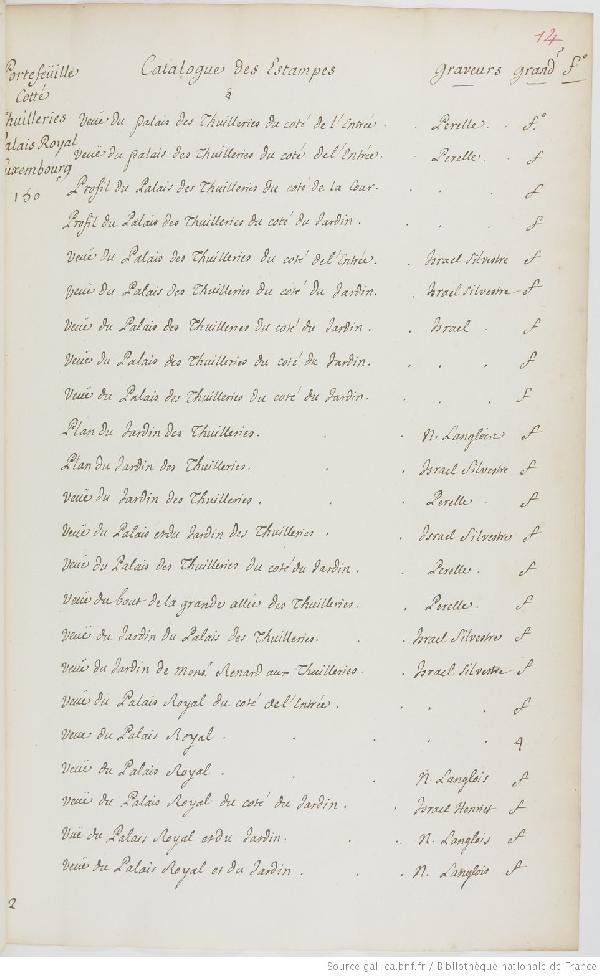 14
Portefeüille Catalogue des Estampes graveurs grandr fo
Cotté
Thuilleries
Palais Royal
Luxembourg
150
Veüe du palais des Thuilleries du coté de l'Entrée . . Perelle . . fo.
Veüe du palais des Thuilleries du coté de l'Entrée . . Perelle . . f
Profil du Palais des Thuilleries du coté de la Cour . . . . f
Profil du Palais des Thuilleries du coté du Jardin . . . . f
Veüe du Palais des Thuilleries du coté de l'Entrée . . Israel Silvestre f
Veüe du Palais des Thuilleries du coté du Jardin . . Israel Silvestre f
Veüe du Palais des Thuilleries du coté du Jardin . . Israel . f
Veüe du Palais des Thuilleries du coté du Jardin . . . . f
Veüe du Palais des Thuilleries du coté du Jardin . . . . f
Plan du Jardin des Thuilleries . . . N. Langlois f
Plan du Jardin des Thuilleries . . . Israel Silvestre f
Veüe du Jardin des Thuilleries . . . Perelle . f
Veüe du Palais et du Jardin des Thuilleries . . Israel Silvestre f
Veüe du Palais des Thuilleries du coté du Jardin . . Perelle . f
Veüe du bout de la grande allée des Thuilleries . . Perelle . f
Veüe du Jardin du Palais des Thuilleries . . Israel Silvestre f
Veüe du Jardin de Monsr Renard aux Thuilleries . . Israel Silvestre f
Veüe du Palais Royal du coté de l'Entrée . . . . f
Veüe du Palais Royal . . . . . 4
Veüe du Palais Royal . . . N. Langlois f
Veüe du Palais Royal du coté du Jardin . . Israel Henriet f
Vüe du Palais Royal et du Jardin . . . N. Langlois f
Veüe du Palais Royal et du Jardin . . . N. Langlois f
2
Source gallica.bnf.fr / Bibliothèque nationale de France